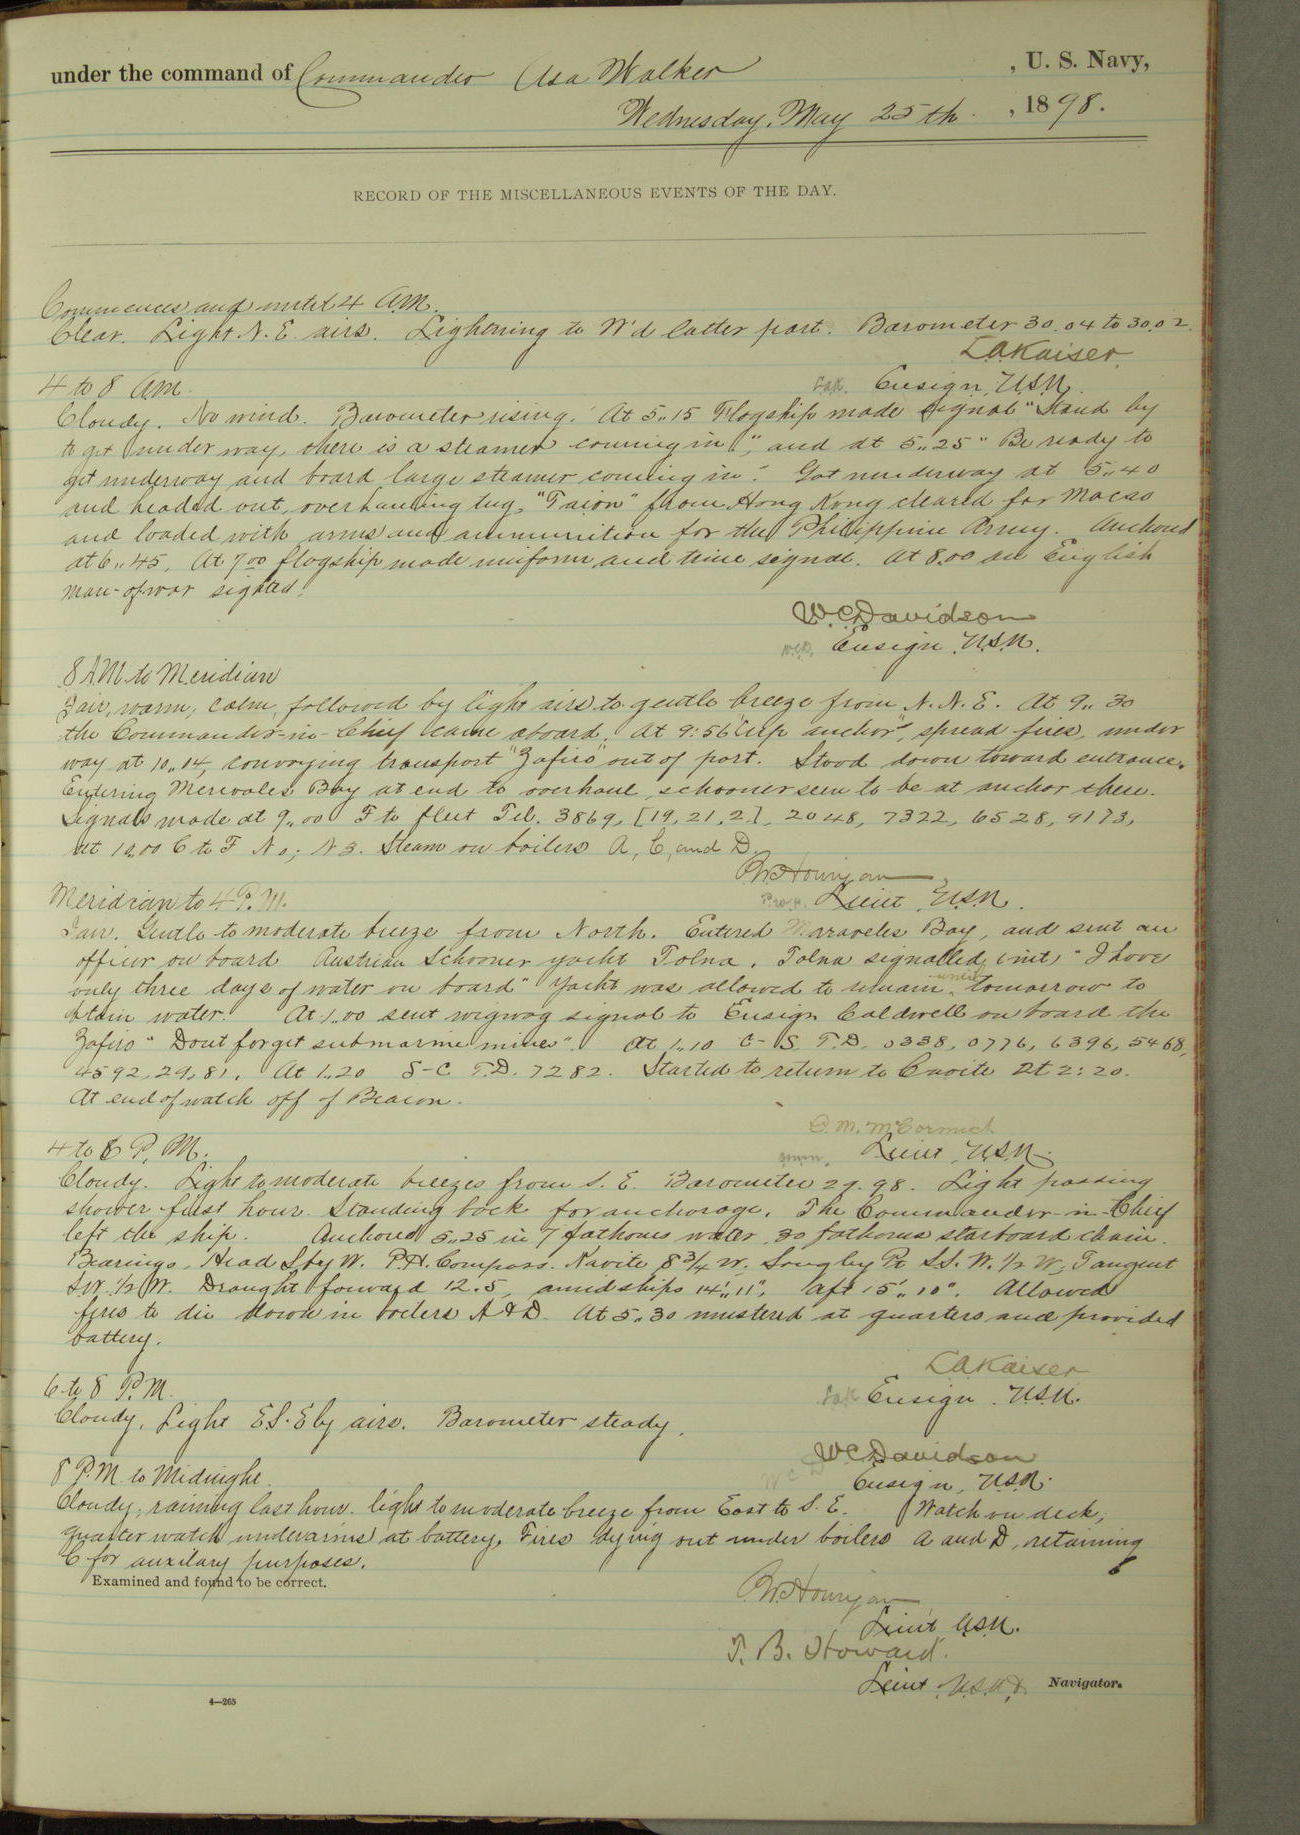 under the command of Commander Asa Walker , U. S. Navy,
Wednesday, May 25th , 1898.
RECORD OF THE MISCELLANEOUS EVENTS OF THE DAY.
Commences and until 4 A.M.
Clear. Light N. E. airs. Lightning to W'd latter part. Barometer 30.04 to 30.02.
L A Kaiser
4 to 8 A.M. Lak. Ensign, U.S.N.
Cloudy. No wind. Barometer rising. At 5..15 Flagship made signal "Stand by
to get under way, there is a steamer coming in", and at 5..25 "Be ready to
get underway and board large steamer coming in". Got underway at 5..40
and headed out, overhauling tug, "Faion" from Hong Kong cleared for Macao
and loaded with arms and ammunition for the Philippine Army. Anchored
at 6..45. At 7 00 flagship made uniform and time signal. At 8.00 an English
man-of-war sighted.
W.C. Davidson
W.C.D. Ensign U.S.N.
8 A.M. to Meridian
Fair, warm, calm, followed by light airs to gentle breeze from N. N. E. At 9.. 30
the Commander-in-Chief came aboard. At 9:56 "up anchor", spread fires, under
way at 10..04, convoying transport "Zafiro" out of port. Stood down toward entrance.
Entering Merivales Bay at end to overhaul schooner seen to be at anchor there.
Signals made at 9..00 F to fleet Tel. 3869, [19, 21, 2], 2048, 7322, 6528, 9173,
At 10.00 C to F No; N 3. Steam on boilers A, C, and D.
P.W. Hourigan
Meridian to 4 P.M. P.W.H. Lieut U.S.N.
Fair. Gentle to moderate breeze from North. Entered Maraveles Bay, and sent an
officer on board Austrian Schooner yacht Tolna. Tolna signalled, (int) "I have
only three days of water on board" Yacht was allowed to remain until tomorrow to
obtain water. At 1..00 sent wigwag signal to Ensign Caldwell on board the
Zafiro "Dont forget submarine mines". At 1..10 C- S. T.D. 0338, 0776, 6396, 5468,
4592, 29, 81. At 1..20 S-C T.D. 7282. Started to return to Cavite at 2:20.
At end of watch off of Beacon.
C. M. McCormick
4 to 6 P. M. Lieut, U.S.N.
Cloudy. Light to moderate breezes from S. E. Barometer 29.98. Light passing
shower first hour. Standing back for anchorage. The Commander-in-Chief
left the ship. Anchored 5..25 in 7 fathoms water 30 fathoms starboard chain.
Bearings, Head S by W. P.H. Compass. Kavite 8 3/4 W, Sangley Pt S.S. W. 1/2 W, Tangent
SW. 1/2 W. Draught forward 12.5, amidships 14'..11", aft 15'..10". Allowed
fires to die down in boilers A & D. At 5..30 mustered at quarters and provided
battery.
L A Kaiser
6 to 8 P.M. Lak Ensign. U.S.N.
Cloudy, Light E.S.Ely airs. Barometer steady.
W C Davidson
8 P.M. to Midnight. W C D Ensign, U.S.N.
Cloudy, raining last hour. light to moderate breeze from East to S. E. Watch on deck,
quarter watch under arms at battery. Fires dying out under boilers A and D, retaining
C for auxilary purposes.
Examined and found to be correct.
P.W. Hourigan
Lieut U.S.N.
T. B. Howard
Lieut U.S.N. Navigator.
4—265